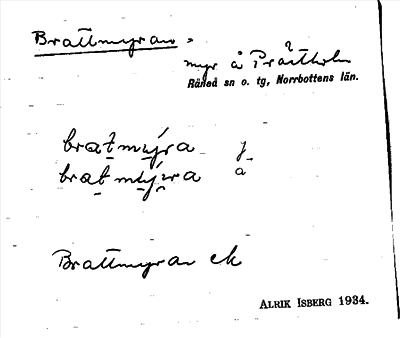 Brattmyran,
myr å Prästholm
Råneå sn o. tg, Norrbottens län.
bratmýra j
bratmýra a
Brattmyran ek
ALRIK ISBERG 1934.